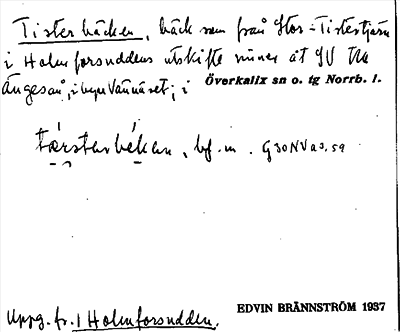 Tisterbäcken, bäck som från Stor-Tistertjärn
i Holmforsuddens utskifte rinner åt SV till
Ängesån, i byn Vännäset; i Överkalix sn o. tg Norrb. l.
bf. m. G30NVa3.59
Uppg. fr. 1 Holmforsudden. EDVIN BRÄNNSTRÖM 1937